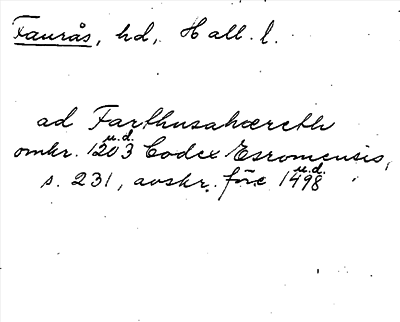 Faurås, hd, Hall. l.
ad Farthusahæreth
u.d.
omkr. 1203 Codex Esromensis,
s. 231, avskr. före 1498
u.d.